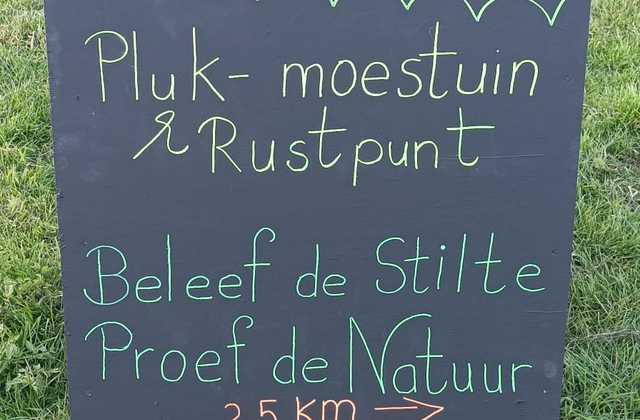 Pluk- moestuin
& Rustpunt
Beleef de Stilte
Proef de Natuur
2,5 km →